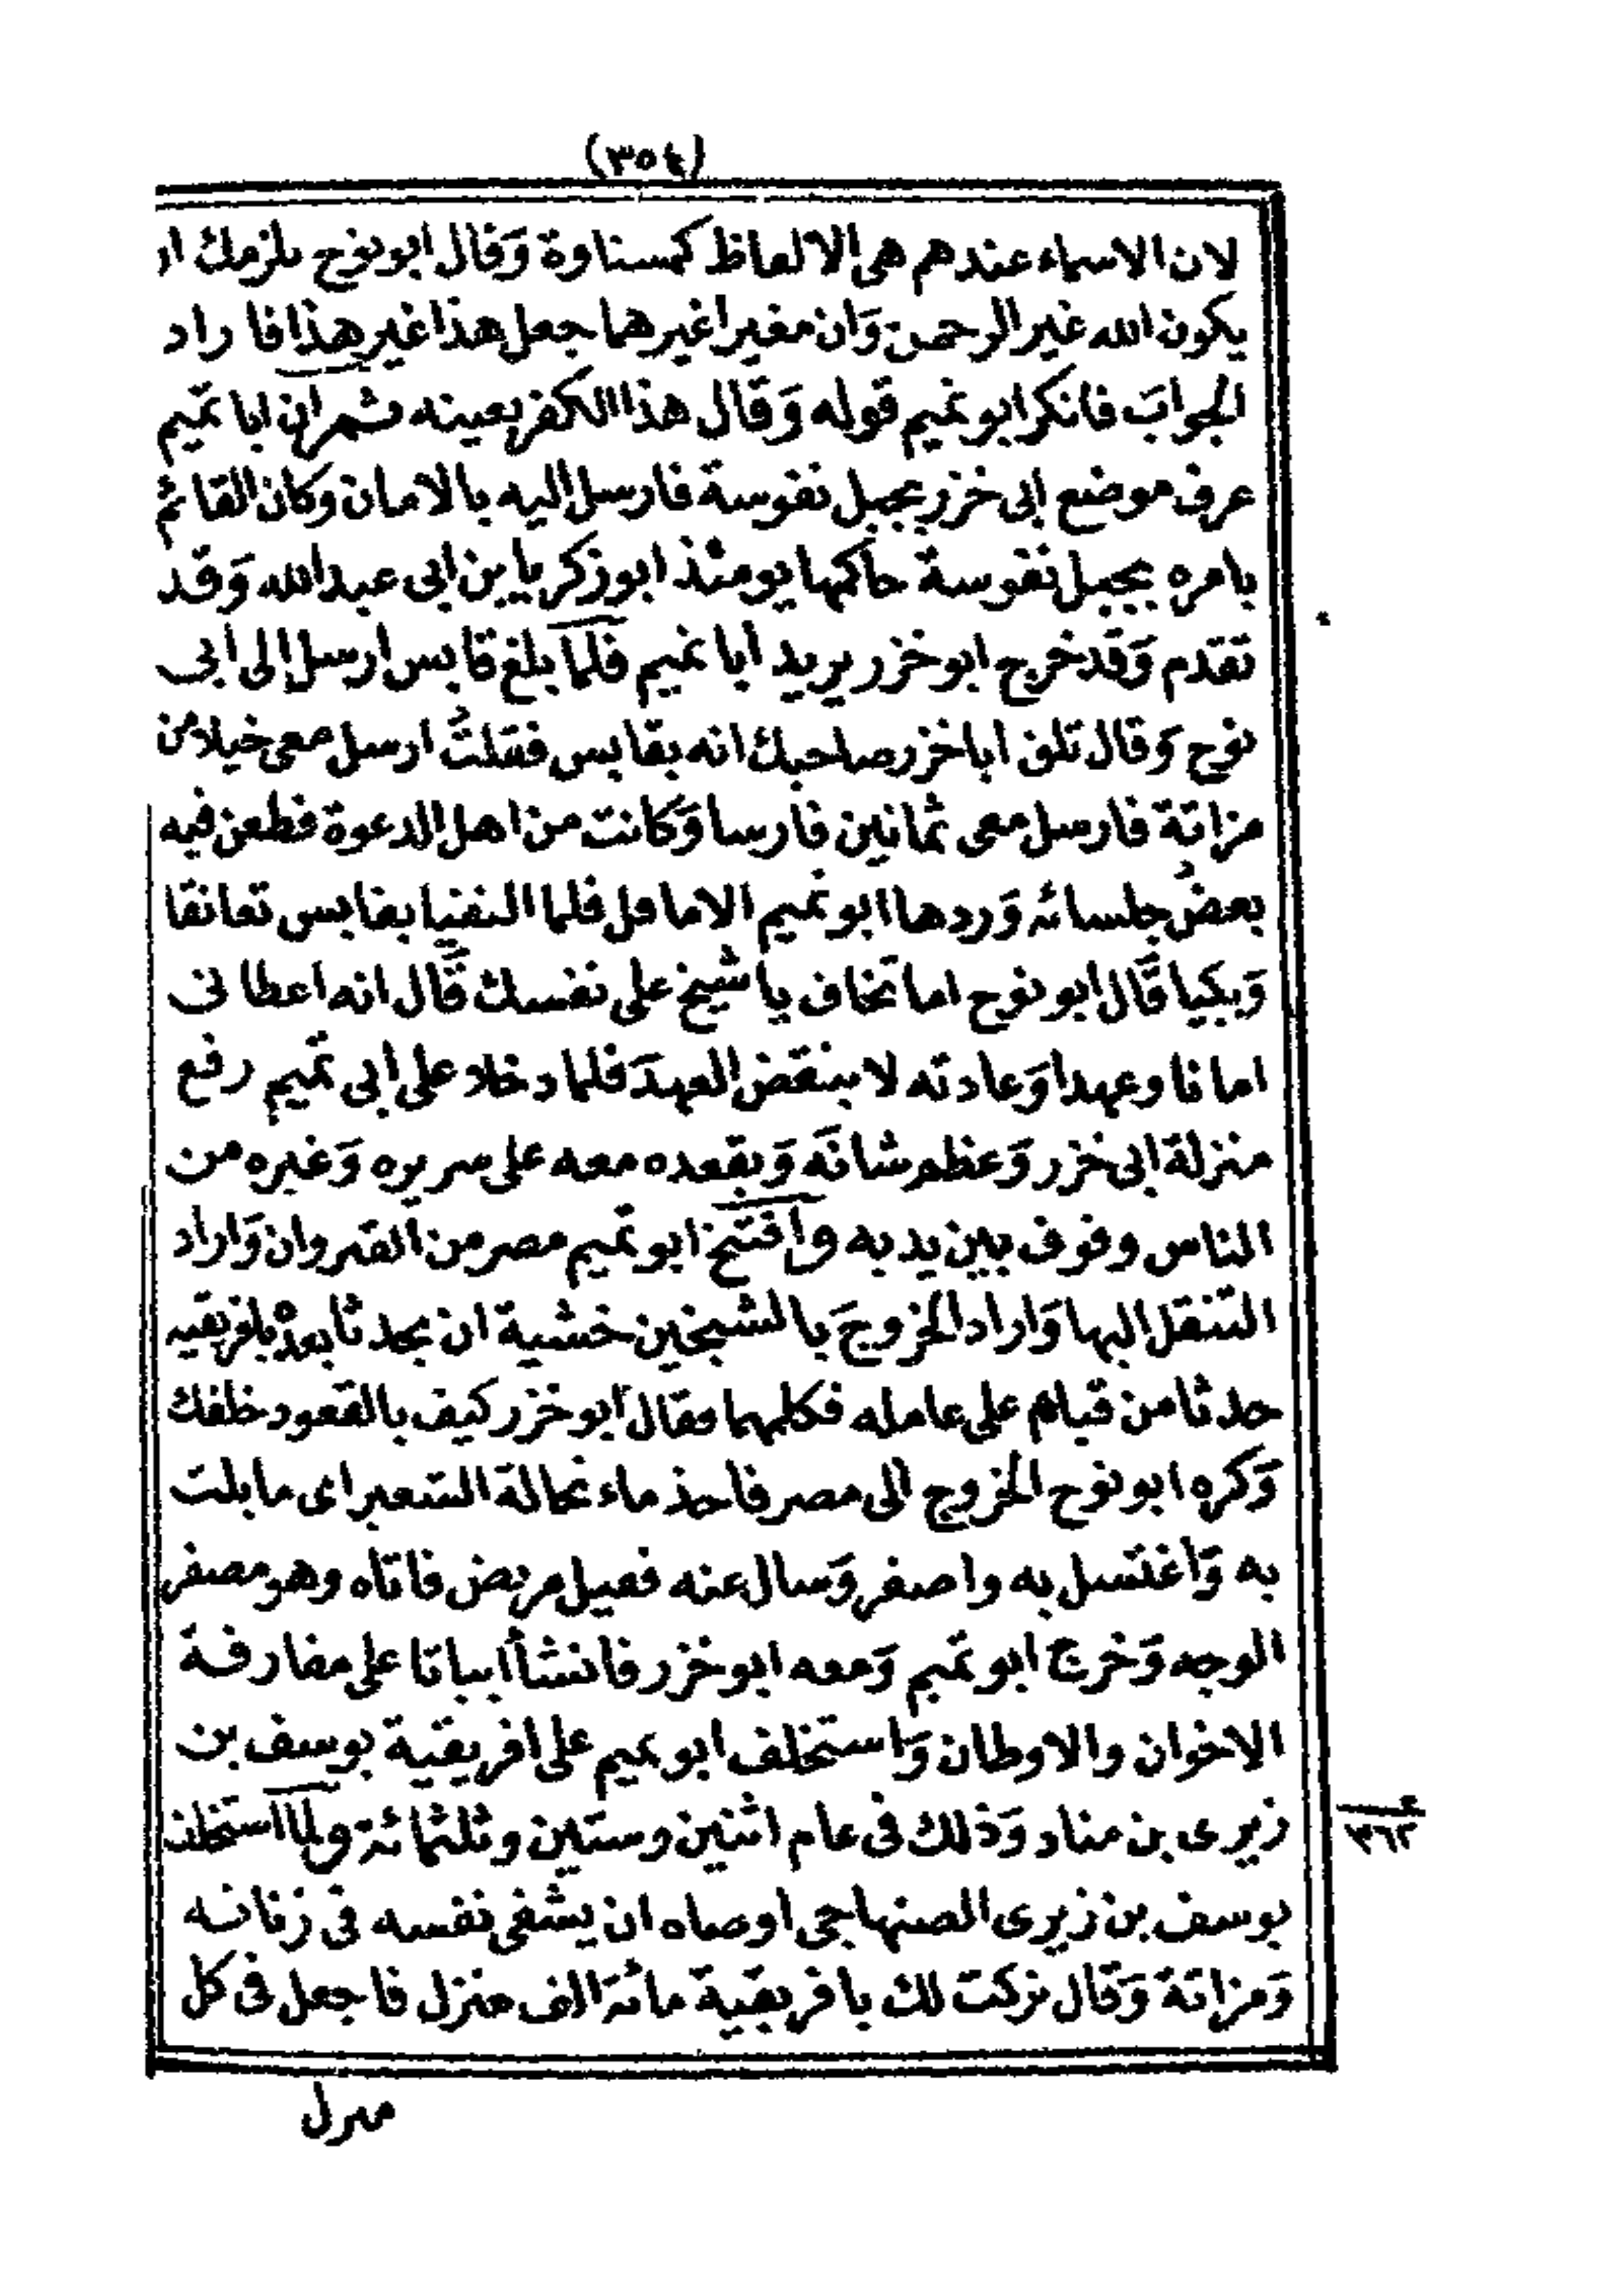 (٣٥٤)
لان الاسماء عندهم هى الالفاظ كمسناوة وَقال ابو نوح يلزمك ان
يكون الله غير الرحمن وَان مغيرا غيرهما جعل هذا غير هذا فاراد
الجوابَ فانكر ابو تميم قوله وَقال هذا الكفر بعينه ثم ان ابا تميم
عرف موضع ابى خزر بجبل نفوسة فارسل اليه بالامان وكان القائم
بامره بجبل نفوسة حاكمها يومئذ ابو زكريا بن ابى عبد الله وَقد
تقدم وَقد خرج ابو خزر يريد ابا تميم فلما بلغ قابس ارسل الى ابى
نوح وَقال تلق ابا خزر صاحبك انه بقابس فقلتُ ارسل معى خيلا من
مزاتة فارسل معى ثمانين فارسا وَكانت من اهل الدعوة فطعن فيه
بعضُ جلسائه وَردها ابو تميم الا ما قل فلما التقيا بقابس تعانقا
وَبكيا قَال ابو نوح اما تخاف يا شيخ على نفسك قَال انه اعطانى
امانا وعهدا وَعادته لا ينقض العهدَ فلما دخلا على ابى تميم رفع
منزلة ابى خزر وَعظم شانَه وَيقعده معه على سريره وَغيره من
الناس وقوف بين يديه وافتتح ابو تميم مصر من القيروان وَاراد
التنقل اليها وَاراد الخروجَ بالشيخين خشية ان يحدثا بعدُ بافريقيه
حدثا من قيام على عامله فكلمهما فقال ابو خزر كيف بالقعود خلفك
وَكره ابو نوح الخروج الى مصر فاخذ ماء نخالة الشعير اى ما بلت
به وَاغتسل به واصفر وَسال عنه فقيل مريض فاتاه وهو مصفر
الوجه وَخرج ابو تميم وَمعه ابو خزر فانشأ ابياتا على مفارقة
الاخوان والاوطان وَاستخلف ابو تميم على افريقية يوسف بن
زيرى بن مناد وَذلك فى عام اثنين وستين وثلثمائة ولما استخلف
٣٦٢
يوسف بن زيرى الصنهاجى اوصاه ان يشفى نفسه فى زناته
وَمزاتة وَقال تركت لك بافريقية مائة الف منزل فاجعل فى كل
منزل